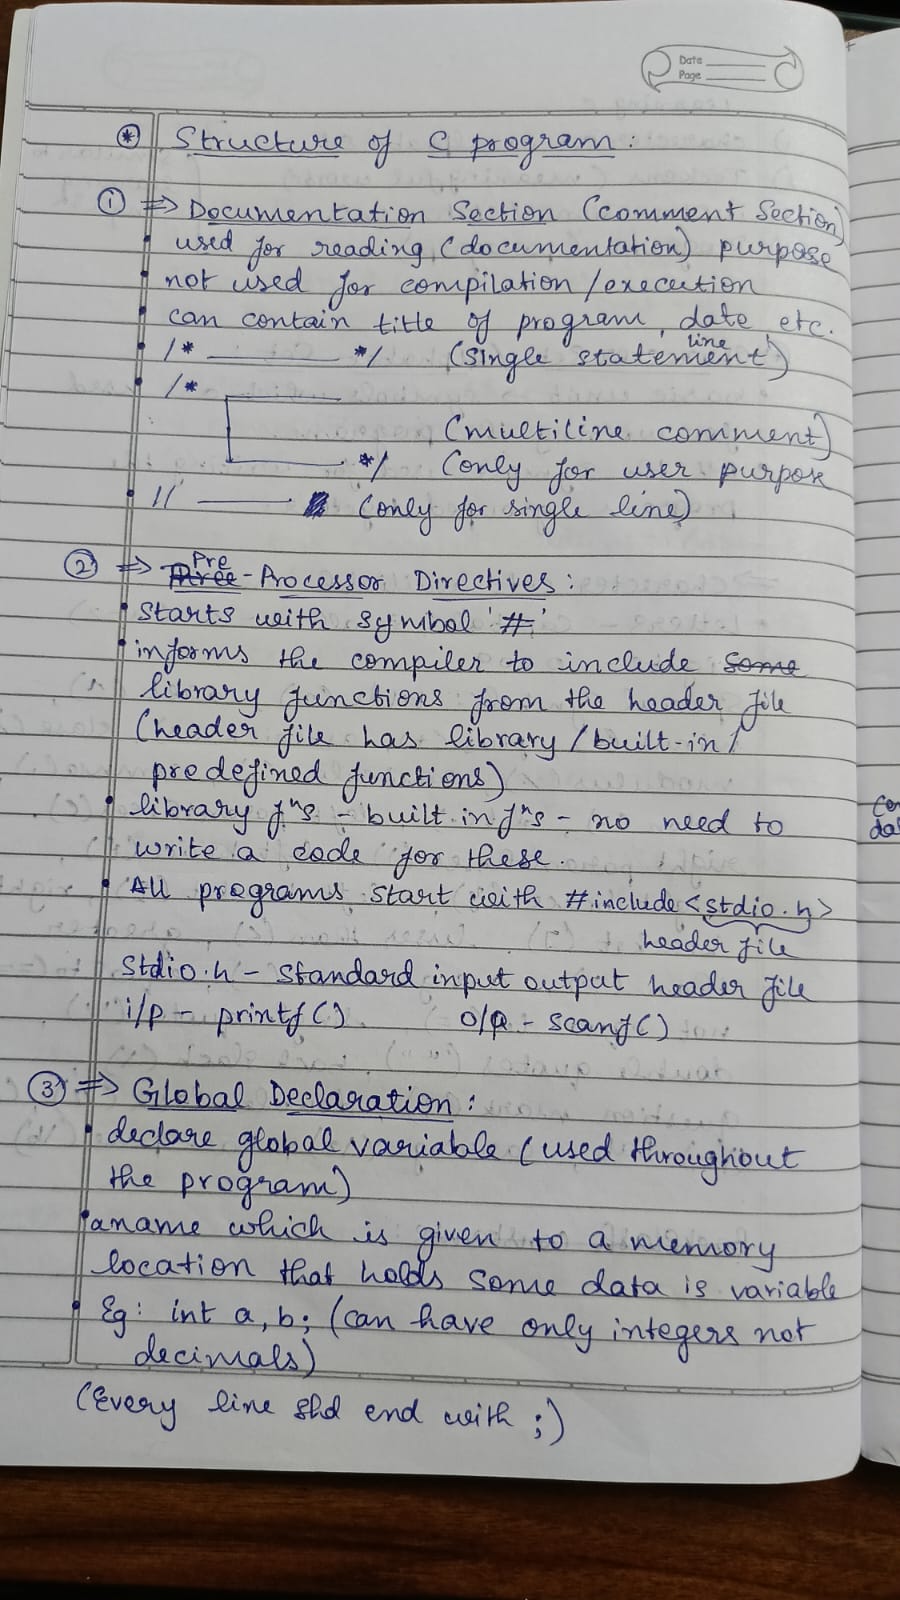 Date
Page
* Structure of C program :
① ⇒ Documentation Section (comment Section)
• used for reading (documentation) purpose
• not used for compilation / execution
• can contain title of program, date etc.
• /* ______ */ (single line statement)
• /*
(multiline comment)
*/ (only for user purpose
• // ______ (only for single line)
② ⇒ Pre-Processor Directives :
• starts with symbol '#'
• informs the compiler to include some
library functions from the header file
(header file has library / built-in /
predefined functions)
• library fⁿs - built in fⁿs - no need to
write a code for these.
• All programs start with #include <stdio.h>
header file
Stdio.h - standard input output header file
i/p - printf() o/p - scanf()
③ ⇒ Global Declaration :
• declare global variable (used throughout
the program)
• aname which is given to a memory
location that holds some data is variable
• Eg: int a, b; (can have only integers not
decimals)
(Every line shd end with ;)